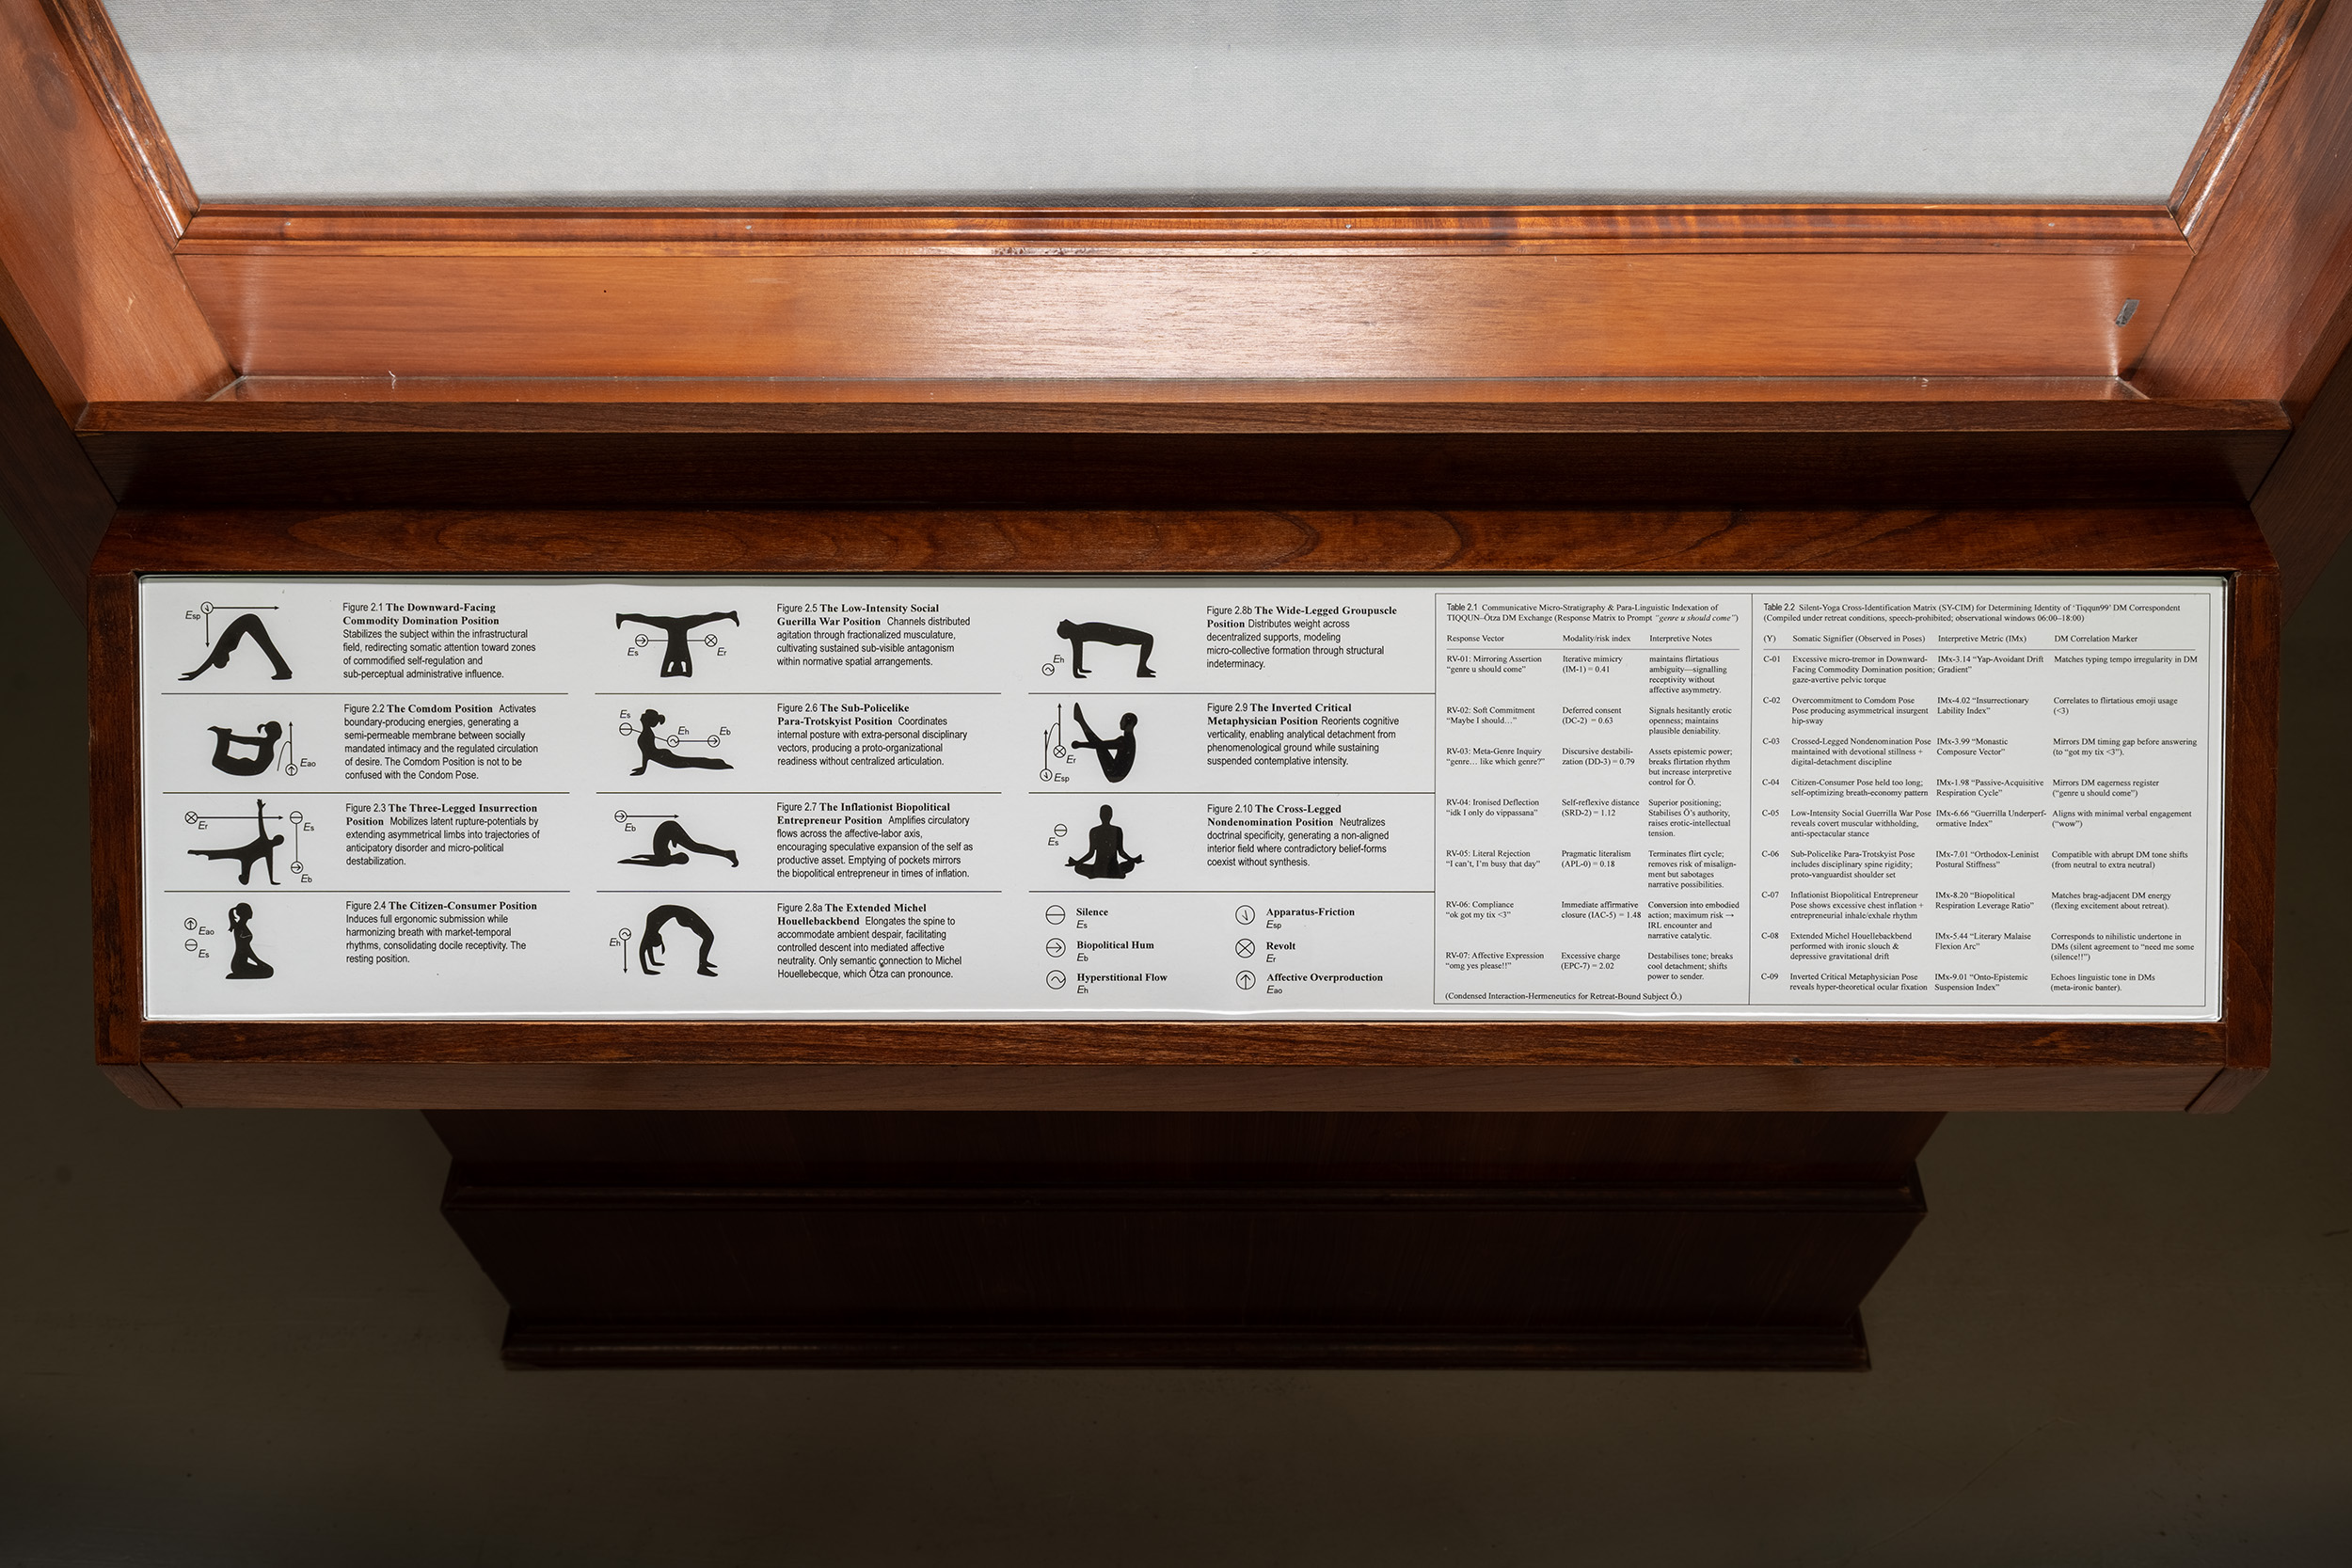 Esp
Figure 2.1 The Downward-Facing
Commodity Domination Position
Stabilizes the subject within the infrastructural
field, redirecting somatic attention toward zones
of commodified self-regulation and
sub-perceptual administrative influence.
Eao
Figure 2.2 The Comdom Position Activates
boundary-producing energies, generating a
semi-permeable membrane between socially
mandated intimacy and the regulated circulation
of desire. The Comdom Position is not to be
confused with the Condom Pose.
Er
Es
Eb
Figure 2.3 The Three-Legged Insurrection
Position Mobilizes latent rupture-potentials by
extending asymmetrical limbs into trajectories of
anticipatory disorder and micro-political
destabilization.
Eao
Es
Figure 2.4 The Citizen-Consumer Position
Induces full ergonomic submission while
harmonizing breath with market-temporal
rhythms, consolidating docile receptivity. The
resting position.
Es
Er
Figure 2.5 The Low-Intensity Social
Guerilla War Position Channels distributed
agitation through fractionalized musculature,
cultivating sustained sub-visible antagonism
within normative spatial arrangements.
Es
Eh
Eb
Figure 2.6 The Sub-Policelike
Para-Trotskyist Position Coordinates
internal posture with extra-personal disciplinary
vectors, producing a proto-organizational
readiness without centralized articulation.
Eb
Figure 2.7 The Inflationist Biopolitical
Entrepreneur Position Amplifies circulatory
flows across the affective-labor axis,
encouraging speculative expansion of the self as
productive asset. Emptying of pockets mirrors
the biopolitical entrepreneur in times of inflation.
Eh
Figure 2.8a The Extended Michel
Houellebackbend Elongates the spine to
accommodate ambient despair, facilitating
controlled descent into mediated affective
neutrality. Only semantic connection to Michel
Houellebecque, which Ötza can pronounce.
Eh
Figure 2.8b The Wide-Legged Groupuscle
Position Distributes weight across
decentralized supports, modeling
micro-collective formation through structural
indeterminacy.
Er
Esp
Figure 2.9 The Inverted Critical
Metaphysician Position Reorients cognitive
verticality, enabling analytical detachment from
phenomenological ground while sustaining
suspended contemplative intensity.
Es
Figure 2.10 The Cross-Legged
Nondenomination Position Neutralizes
doctrinal specificity, generating a non-aligned
interior field where contradictory belief-forms
coexist without synthesis.
Silence
Es
Biopolitical Hum
Eb
Hyperstitional Flow
Eh
Apparatus-Friction
Esp
Revolt
Er
Affective Overproduction
Eao
Table 2.1 Communicative Micro-Stratigraphy & Para-Linguistic Indexation of
TIQQUN–Ötza DM Exchange (Response Matrix to Prompt “genre u should come”)
Response Vector Modality/risk index Interpretive Notes
RV-01: Mirroring Assertion Iterative mimicry maintains flirtatious
“genre u should come” (IM-1) = 0.41 ambiguity—signalling
receptivity without
affective asymmetry.
RV-02: Soft Commitment Deferred consent Signals hesitantly erotic
“Maybe I should…” (DC-2) = 0.63 openness; maintains
plausible deniability.
RV-03: Meta-Genre Inquiry Discursive destabili- Assets epistemic power;
“genre… like which genre?” zation (DD-3) = 0.79 breaks flirtation rhythm
but increase interpretive
control for Ö.
RV-04: Ironised Deflection Self-reflexive distance Superior positioning;
“idk I only do vippassana” (SRD-2) = 1.12 Stabilises Ö’s authority,
raises erotic-intellectual
tension.
RV-05: Literal Rejection Pragmatic literalism Terminates flirt cycle;
“I can’t, I’m busy that day” (APL-0) = 0.18 removes risk of misalign-
ment but sabotages
narrative possibilities.
RV-06: Compliance Immediate affirmative Conversion into embodied
“ok got my tix <3” closure (IAC-5) = 1.48 action; maximum risk →
IRL encounter and
narrative catalytic.
RV-07: Affective Expression Excessive charge Destabilises tone; breaks
“omg yes please!!” (EPC-7) = 2.02 cool detachment; shifts
power to sender.
(Condensed Interaction-Hermeneutics for Retreat-Bound Subject Ö.)
Table 2.2 Silent-Yoga Cross-Identification Matrix (SY-CIM) for Determining Identity of ‘Tiqqun99’ DM Correspondent
(Compiled under retreat conditions, speech-prohibited; observational windows 06:00–18:00)
(Y) Somatic Signifier (Observed in Poses) Interpretive Metric (IMx) DM Correlation Marker
C-01 Excessive micro-tremor in Downward- IMx-3.14 “Yap-Avoidant Drift Matches typing tempo irregularity in DM
Facing Commodity Domination position; Gradient”
gaze-avertive pelvic torque
C-02 Overcommitment to Comdom Pose IMx-4.02 “Insurrectionary Correlates to flirtatious emoji usage
Pose producing asymmetrical insurgent Lability Index” (<3)
hip-sway
C-03 Crossed-Legged Nondenomination Pose IMx-3.99 “Monastic Mirrors DM timing gap before answering
maintained with devotional stillness + Composure Vector” (to “got my tix <3”).
digital-detachment discipline
C-04 Citizen-Consumer Pose held too long; IMx-1.98 “Passive-Acquisitive Mirrors DM eagerness register
self-optimizing breath-economy pattern Respiration Cycle” (“genre u should come”)
C-05 Low-Intensity Social Guerrilla War Pose IMx-6.66 “Guerrilla Underperf- Aligns with minimal verbal engagement
reveals covert muscular withholding, ormative Index” (“wow”)
anti-spectacular stance
C-06 Sub-Policelike Para-Trotskyist Pose IMx-7.01 “Orthodox-Leninist Compatible with abrupt DM tone shifts
includes disciplinary spine rigidity; Postural Stiffness” (from neutral to extra neutral)
proto-vanguardist shoulder set
C-07 Inflationist Biopolitical Entrepreneur IMx-8.20 “Biopolitical Matches brag-adjacent DM energy
Pose shows excessive chest inflation + Respiration Leverage Ratio” (flexing excitement about retreat).
entrepreneurial inhale/exhale rhythm
C-08 Extended Michel Houellebackbend IMx-5.44 “Literary Malaise Corresponds to nihilistic undertone in
performed with ironic slouch & Flexion Arc” DMs (silent agreement to “need me some
depressive gravitational drift (silence!!”)
C-09 Inverted Critical Metaphysician Pose IMx-9.01 “Onto-Epistemic Echoes linguistic tone in DMs
reveals hyper-theoretical ocular fixation Suspension Index” (meta-ironic banter).